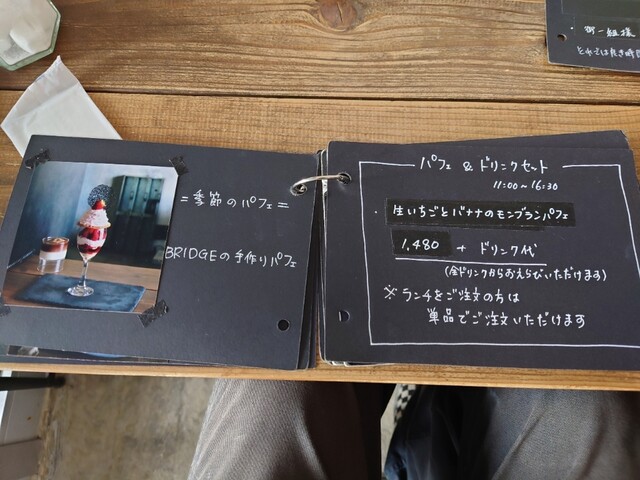 =季節のパフェ=
BRIDGEの手作りパフェ
パフェ & ドリンクセット
11:00~16:30
・生いちごとバナナのモンブランパフェ
1,480 + ドリンク代
(全ドリンクからおえらびいただけます)
※ランチをご注文の方は
単品でご注文いただけます
一組様